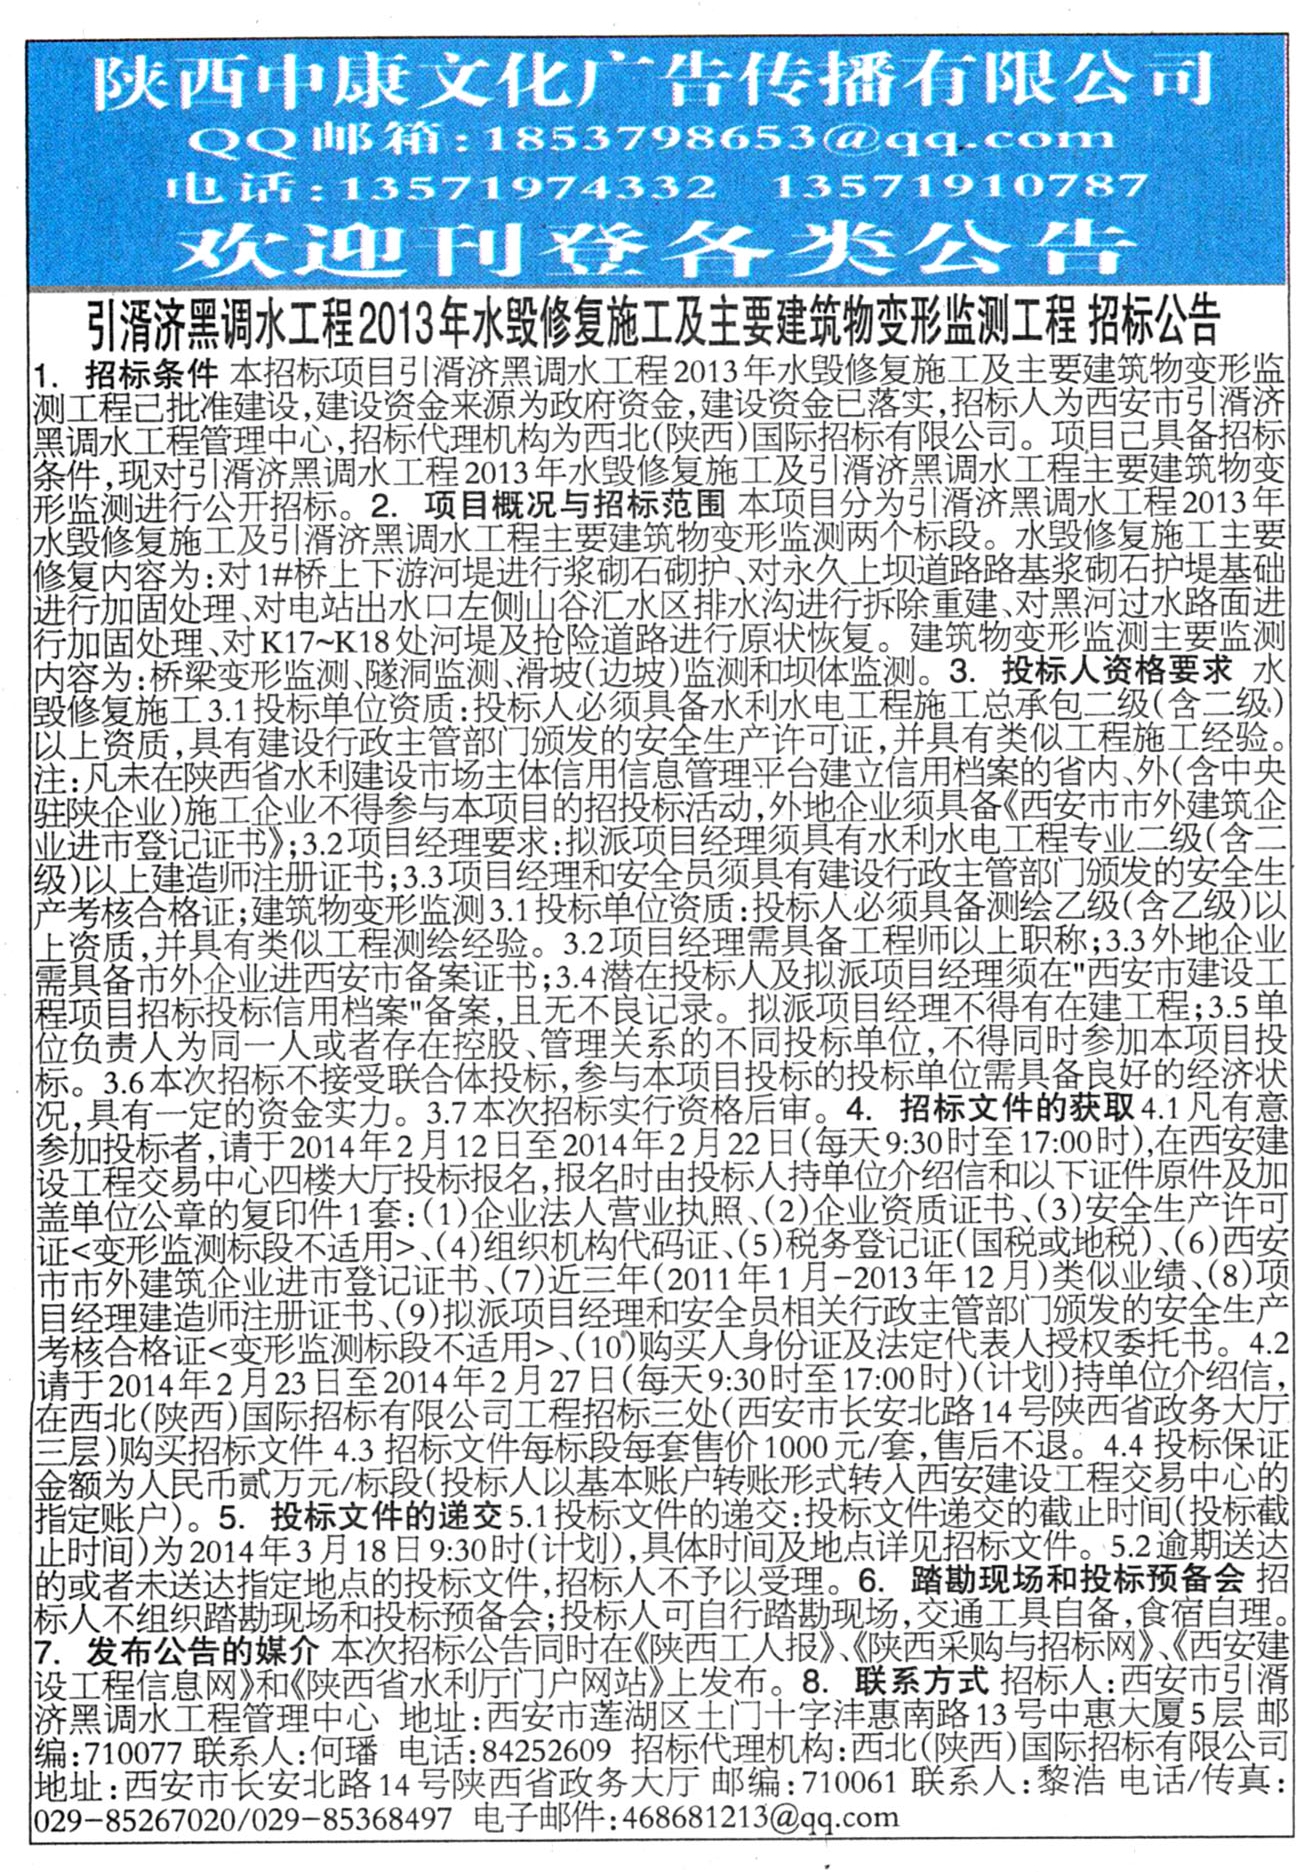 陕西中康文化广告传播有限公司
QQ邮箱:1853798653@qq.com
电话:13571974332 13571910787
欢迎刊登各类公告
引湑济黑调水工程2013年水毁修复施工及主要建筑物变形监测工程 招标公告
1. 招标条件 本招标项目引湑济黑调水工程2013年水毁修复施工及主要建筑物变形监
测工程已批准建设,建设资金来源为政府资金,建设资金已落实,招标人为西安市引湑济
黑调水工程管理中心,招标代理机构为西北(陕西)国际招标有限公司。项目已具备招标
条件,现对引湑济黑调水工程2013年水毁修复施工及引湑济黑调水工程主要建筑物变
形监测进行公开招标。2. 项目概况与招标范围 本项目分为引湑济黑调水工程2013年
水毁修复施工及引湑济黑调水工程主要建筑物变形监测两个标段。水毁修复施工主要
修复内容为:对1#桥上下游河堤进行浆砌石砌护、对永久上坝道路路基浆砌石护堤基础
进行加固处理、对电站出水口左侧山谷汇水区排水沟进行拆除重建、对黑河过水路面进
行加固处理、对K17~K18处河堤及抢险道路进行原状恢复。建筑物变形监测主要监测
内容为:桥梁变形监测、隧洞监测、滑坡(边坡)监测和坝体监测。3. 投标人资格要求 水
毁修复施工3.1投标单位资质:投标人必须具备水利水电工程施工总承包二级(含二级)
以上资质,具有建设行政主管部门颁发的安全生产许可证,并具有类似工程施工经验。
注:凡未在陕西省水利建设市场主体信用信息管理平台建立信用档案的省内、外(含中央
驻陕企业)施工企业不得参与本项目的招投标活动,外地企业须具备《西安市市外建筑企
业进市登记证书》;3.2项目经理要求:拟派项目经理须具有水利水电工程专业二级(含二
级)以上建造师注册证书;3.3项目经理和安全员须具有建设行政主管部门颁发的安全生
产考核合格证;建筑物变形监测3.1投标单位资质:投标人必须具备测绘乙级(含乙级)以
上资质,并具有类似工程测绘经验。3.2项目经理需具备工程师以上职称;3.3外地企业
需具备市外企业进西安市备案证书;3.4潜在投标人及拟派项目经理须在"西安市建设工
程项目招标投标信用档案"备案,且无不良记录。拟派项目经理不得有在建工程;3.5单
位负责人为同一人或者存在控股、管理关系的不同投标单位,不得同时参加本项目投
标。3.6本次招标不接受联合体投标,参与本项目投标的投标单位需具备良好的经济状
况,具有一定的资金实力。3.7本次招标实行资格后审。4. 招标文件的获取4.1凡有意
参加投标者,请于2014年2月12日至2014年2月22日(每天9:30时至17:00时),在西安建
设工程交易中心四楼大厅投标报名,报名时由投标人持单位介绍信和以下证件原件及加
盖单位公章的复印件1套:(1)企业法人营业执照、(2)企业资质证书、(3)安全生产许可
证<变形监测标段不适用>、(4)组织机构代码证、(5)税务登记证(国税或地税)、(6)西安
市市外建筑企业进市登记证书、(7)近三年(2011年1月-2013年12月)类似业绩、(8)项
目经理建造师注册证书、(9)拟派项目经理和安全员相关行政主管部门颁发的安全生产
考核合格证<变形监测标段不适用>、(10)购买人身份证及法定代表人授权委托书。4.2
请于2014年2月23日至2014年2月27日(每天9:30时至17:00时)(计划)持单位介绍信,
在西北(陕西)国际招标有限公司工程招标三处(西安市长安北路14号陕西省政务大厅
三层)购买招标文件 4.3 招标文件每标段每套售价1000元/套,售后不退。4.4 投标保证
金额为人民币贰万元/标段(投标人以基本账户转账形式转入西安建设工程交易中心的
指定账户)。5. 投标文件的递交5.1投标文件的递交:投标文件递交的截止时间(投标截
止时间)为2014年3月18日9:30时(计划),具体时间及地点详见招标文件。5.2逾期送达
的或者未送达指定地点的投标文件,招标人不予以受理。6. 踏勘现场和投标预备会 招
标人不组织踏勘现场和投标预备会;投标人可自行踏勘现场,交通工具自备,食宿自理。
7. 发布公告的媒介 本次招标公告同时在《陕西工人报》、《陕西采购与招标网》、《西安建
设工程信息网》和《陕西省水利厅门户网站》上发布。8. 联系方式 招标人:西安市引湑
济黑调水工程管理中心 地址:西安市莲湖区土门十字沣惠南路13号中惠大厦5层 邮
编:710077 联系人:何璠 电话:84252609 招标代理机构:西北(陕西)国际招标有限公司
地址:西安市长安北路14号陕西省政务大厅 邮编:710061 联系人:黎浩 电话/传真:
029-85267020/029-85368497 电子邮件:468681213@qq.com